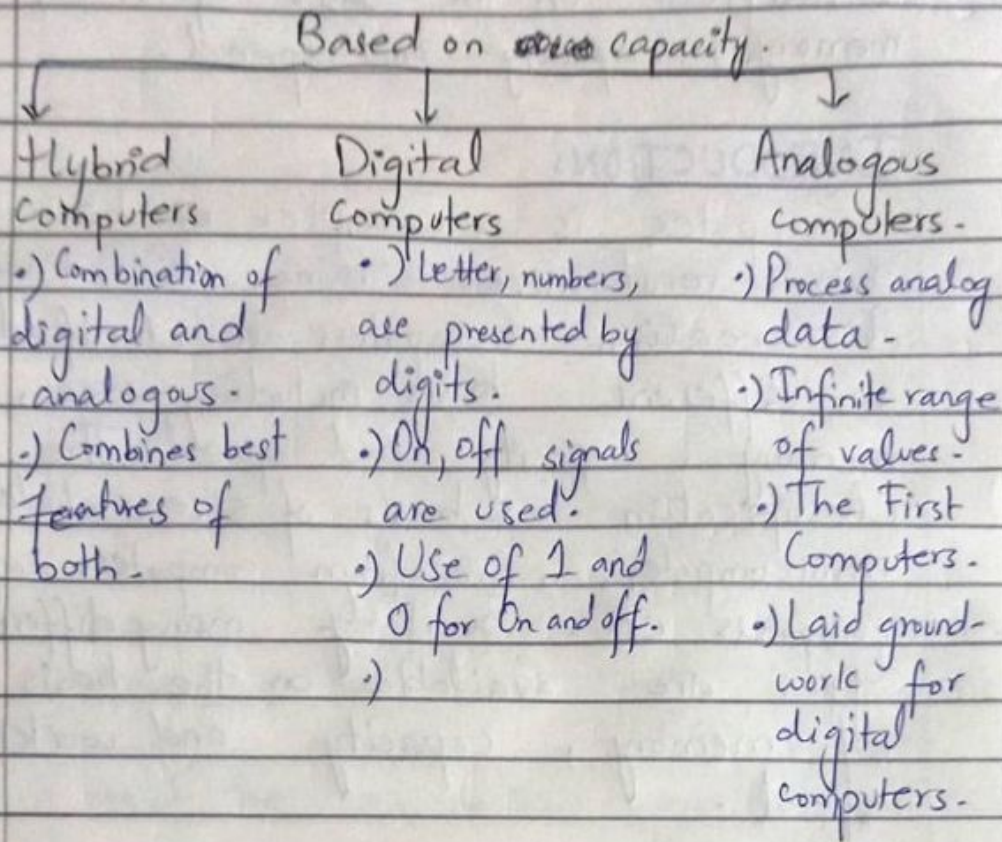 Based on capacity.
Hybrid
Computers
•) Combination of
digital and
analogous.
•) Combines best
features of
both.
Digital
Computers
•) Letter, numbers,
are presented by
digits.
•) On, off signals
are used.
•) Use of 1 and
0 for On and off.
•)
Analogous
computers.
•) Process analog
data.
•) Infinite range
of values.
•) The First
Computers.
•) Laid ground-
work for
digital
computers.